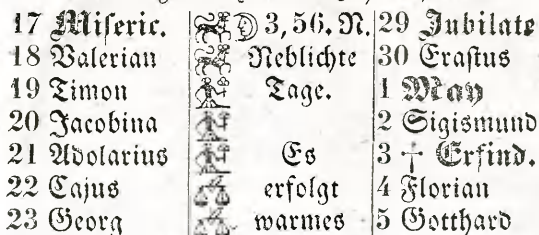 17 Miseric. 3, 56. N. 29 Jubilate
18 Valerian Neblichte 30 Erastus
19 Timon Tage. 1 May
20 Jacobina 2 Sigismund
21 Adolarius Es 3 † Erfind.
22 Cajus erfolgt 4 Florian
23 Georg warmes 5 Gotthard